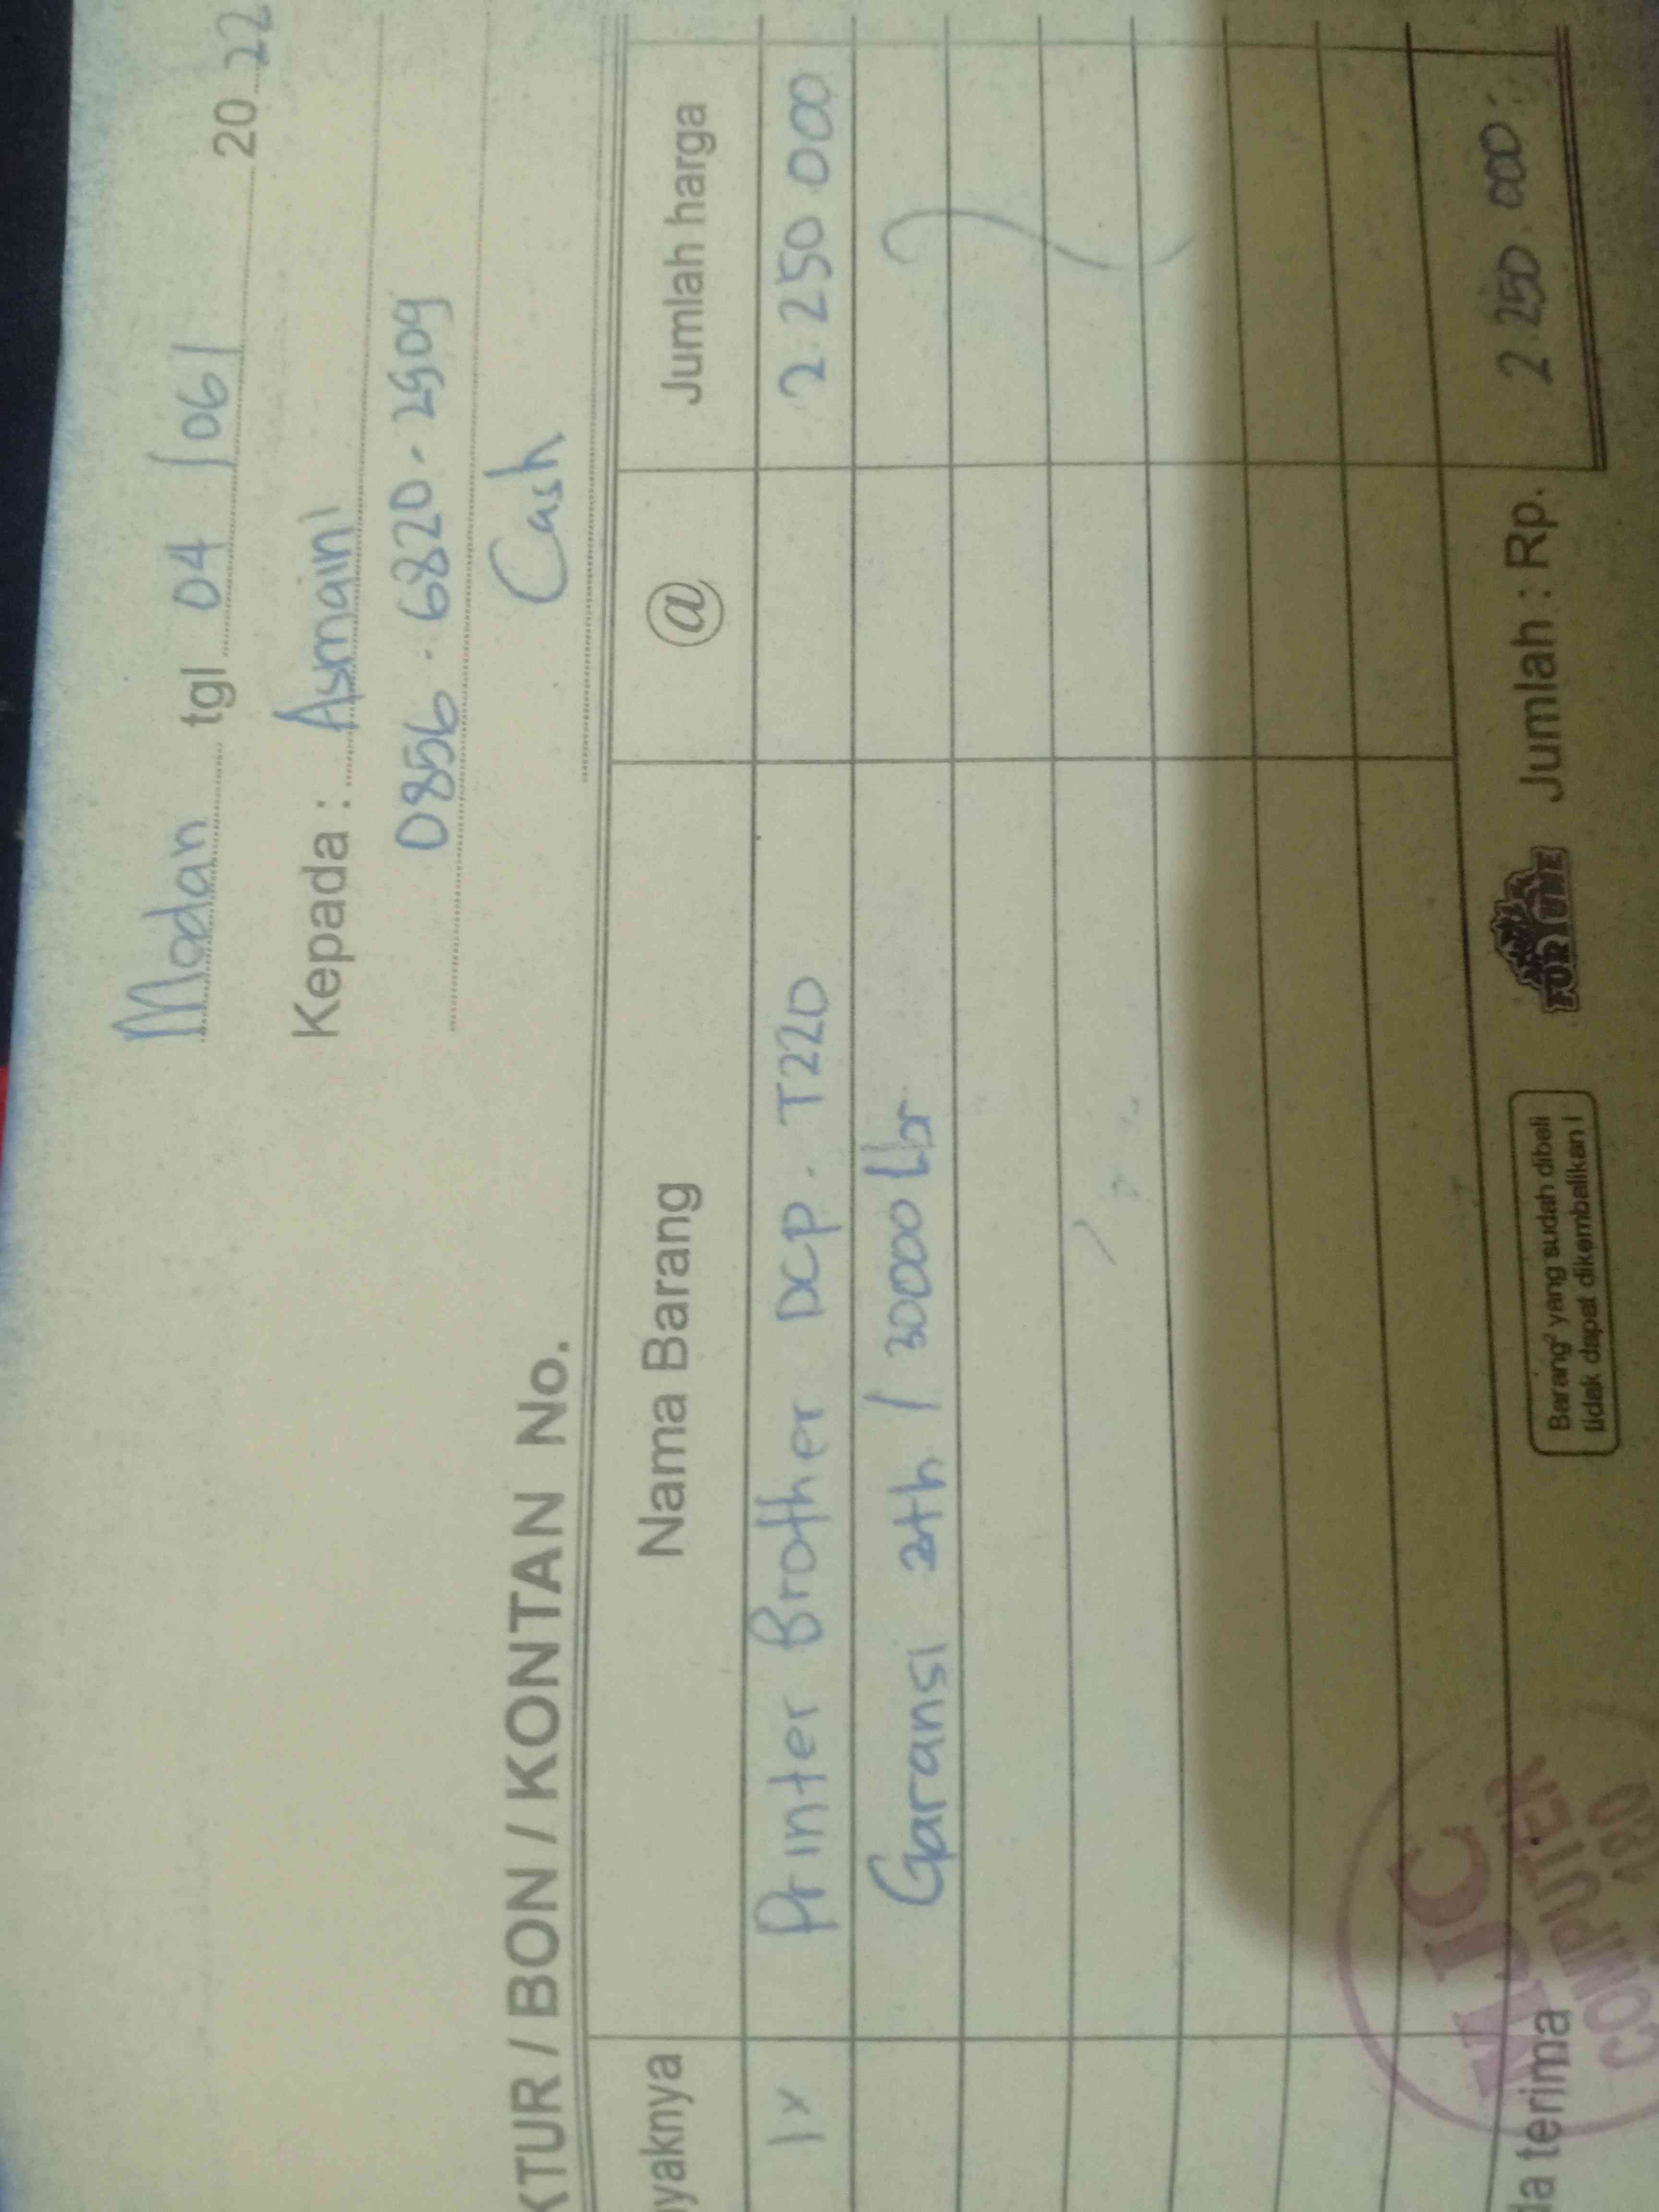 Medan tgl 04 / 06 / 20 22
Kepada : Asmaini
0856 - 6820 - 2909
Cash
KTUR / BON / KONTAN No.
yaknya Nama Barang @ Jumlah harga
1 x Printer Brother DCP - T220 2.250.000
Garansi 2th / 30000 Lbr
Jumlah : Rp. 2.250.000
Barang² yang sudah dibeli
tidak dapat dikembalikan !
FORTUNE
da terima
MJC
COMPUTER